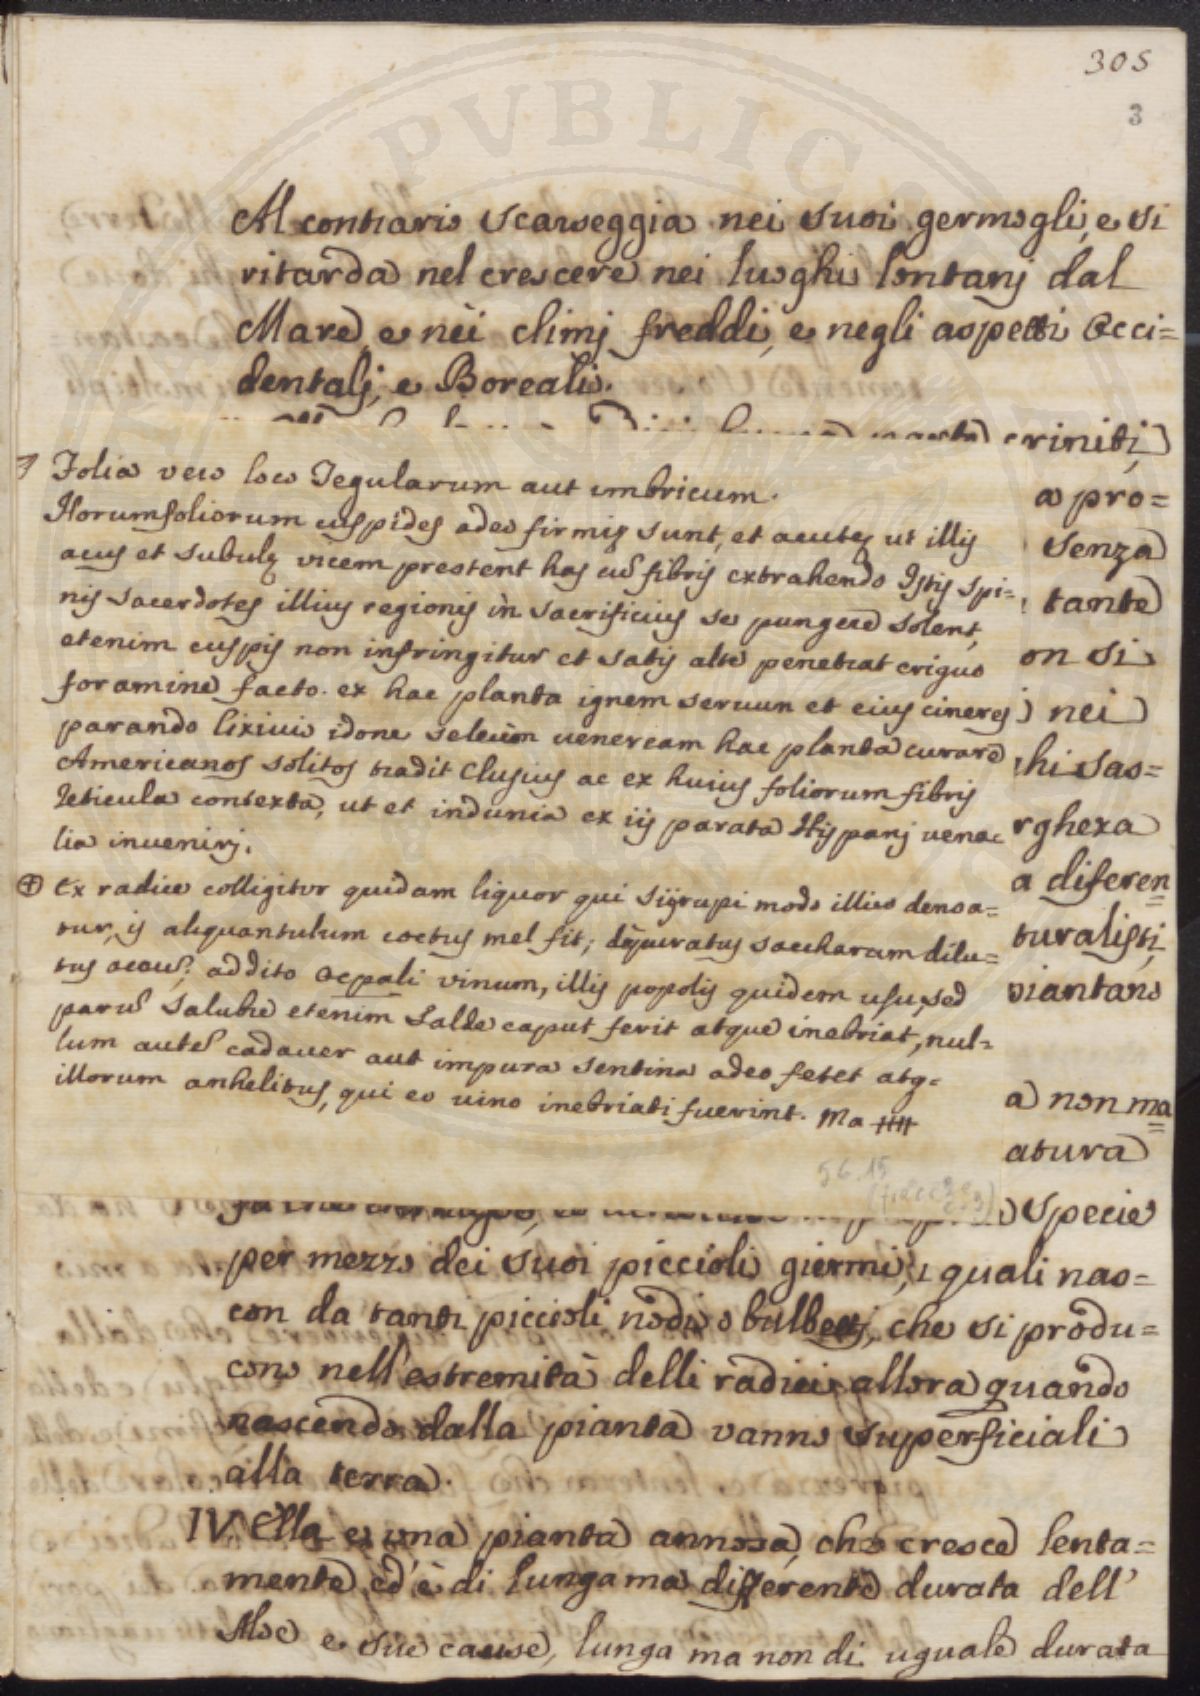 305
3
PVBLICA
Al contrario scarseggia nei suoi germogli, e si
ritarda nel crescere nei luoghi lontanj dal
Mare, e nèi climj freddi, e negli aspetti Occi=
dentalj, e Boreali.
criniti,
Folia vero loco Tegularum aut imbricum.
a pro=
Horumfoliorum cuspides adeo firmis sunt, et acutes ut illis
senza
acus et subulę vicem prestent has cũ fibris extrahendo Istis spi=
tante
nis sacerdotes illius regionis in sacrificiis se pungere solent,
etenim cuspis non infringitur et satis alte penetrat exiguo
on si
foramine facto. ex hac planta ignem servun et eius cineres
nei
parando lixivio idone seleüm veneream hac planta curare
chi sas=
Americanos solitos tradit Clusius ac ex huius foliorum fibris
Reticula contexta, ut et indunia ex iis parata Hispanj vena=
rgheza
lia invenirj.
a diferen
⊕ Ex radice colligitur quidam liquor qui siÿrupi modo illico densa=
turalisti,
tur, is aliquantulum coctus mel fit; depuratus saccharum dilu=
tus acaus; addito Ocpali vinum, illis popolis quidem usu, sed
piantano
parũ salubre etenim Salde caput ferit atque inebriat, nul=
lum autẽ cadaver aut impura sentina adeo fetet atq=
illorum anhelitus, qui eo vino inebriati fuerint. Ma
a non ma
atura
56.15
Specie
per mezzo dei suoi piccioli giermi, i quali nas=
con da tanti piccioli nodi, o bulbettj, che si produ=
cono nell'estremità delli radici allora quando
nascendo dalla pianta vanno superficiali
alla terra.
IV. Ella e una pianta annosa, che cresce lenta=
mente, ed è di lunga ma differente durata dell'
Aloe e sue cause, lunga ma non di uguale durata